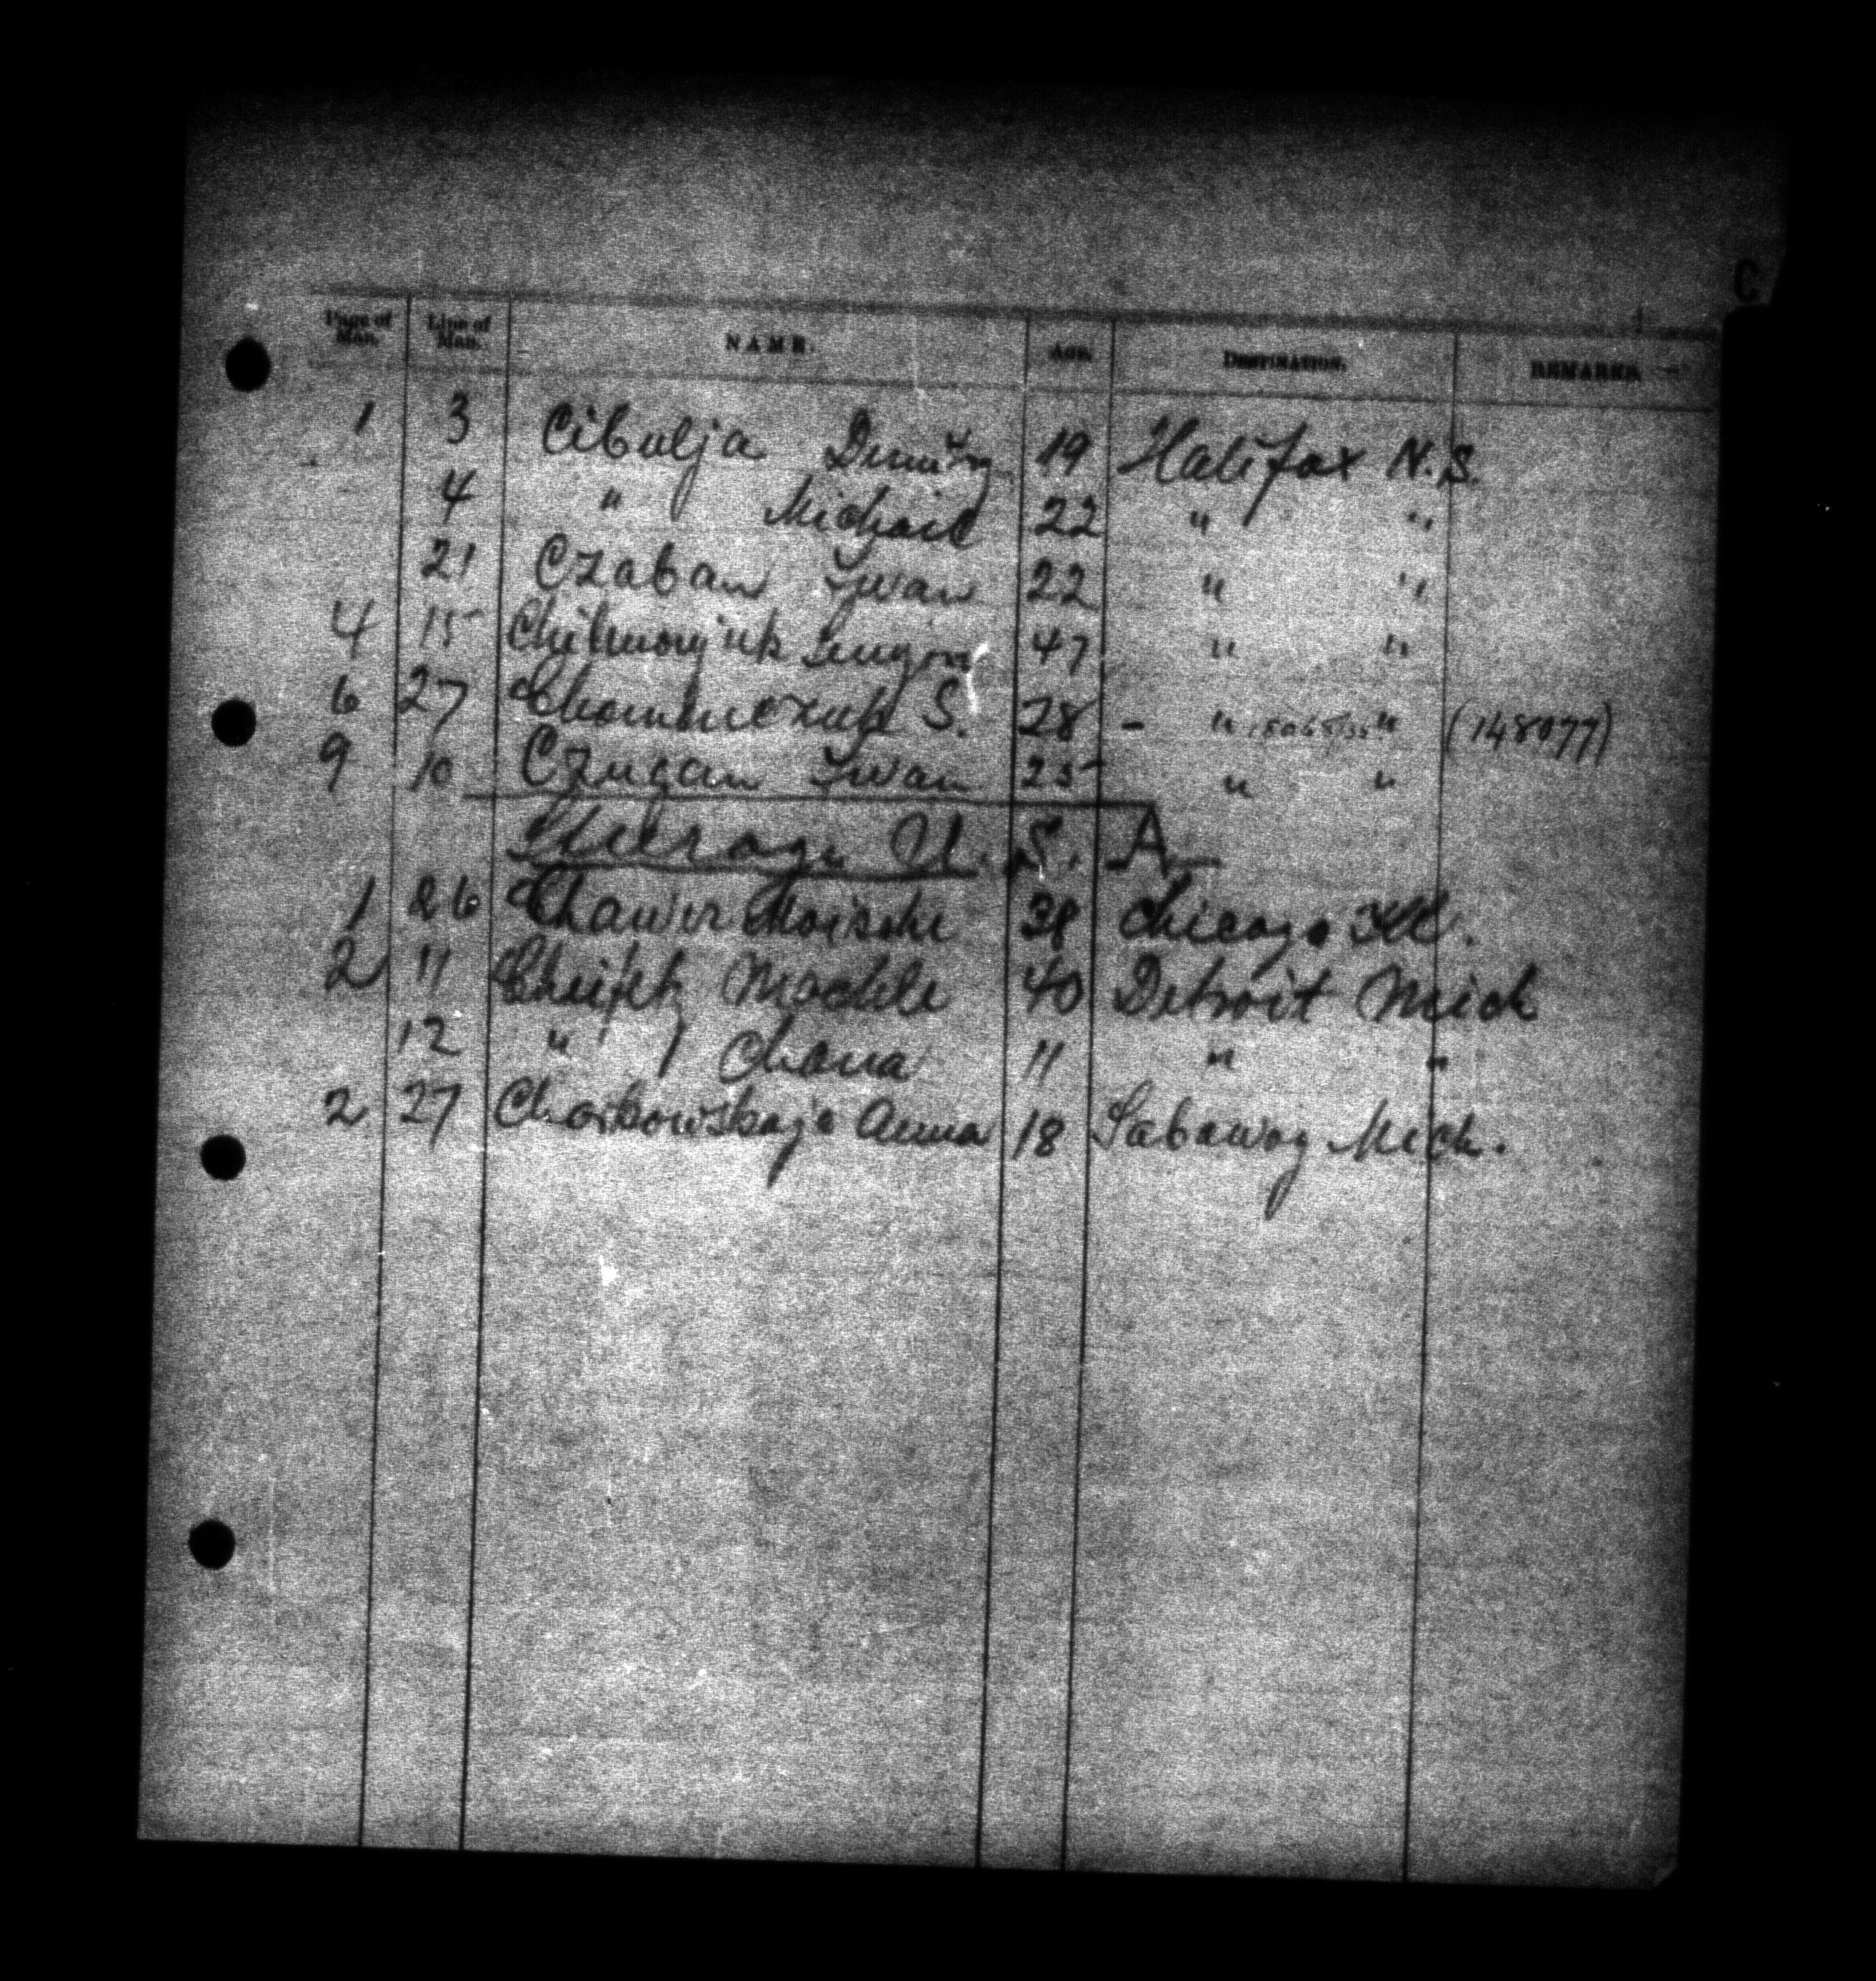 C
Page of Man. Line of Man. NAME. AGE. DESTINATION. REMARKS
1 3 Cibulja Dmitry 19 Halifax N.S.
4 " Michail 22 " "
21 Czaban Iwan 22 " "
4 15 47 " "
6 27 S. 28 - " " (148077)
9 10 Czugan Iwan 25 " "
Steerage U. S. A
1 26 Moische 38 Chicago Ill.
2 11 Machle 40 Detroit Mich
12 " Chana 11 " "
2 27 Anna 18 Mich.